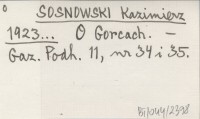 SOSNOWSKI Kazimierz
1923... O Gorcach. —
Gaz. Podh. 11, nr 34 i 35.
BJ/OUU/2398